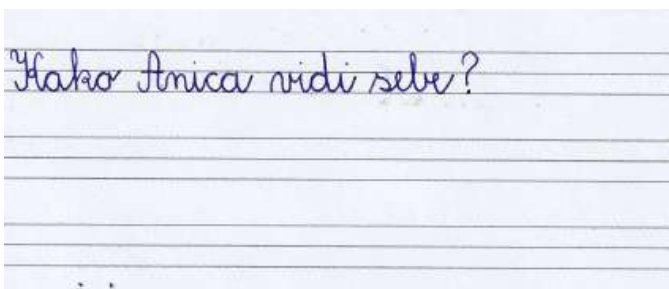 Kako Anica vidi sebe?